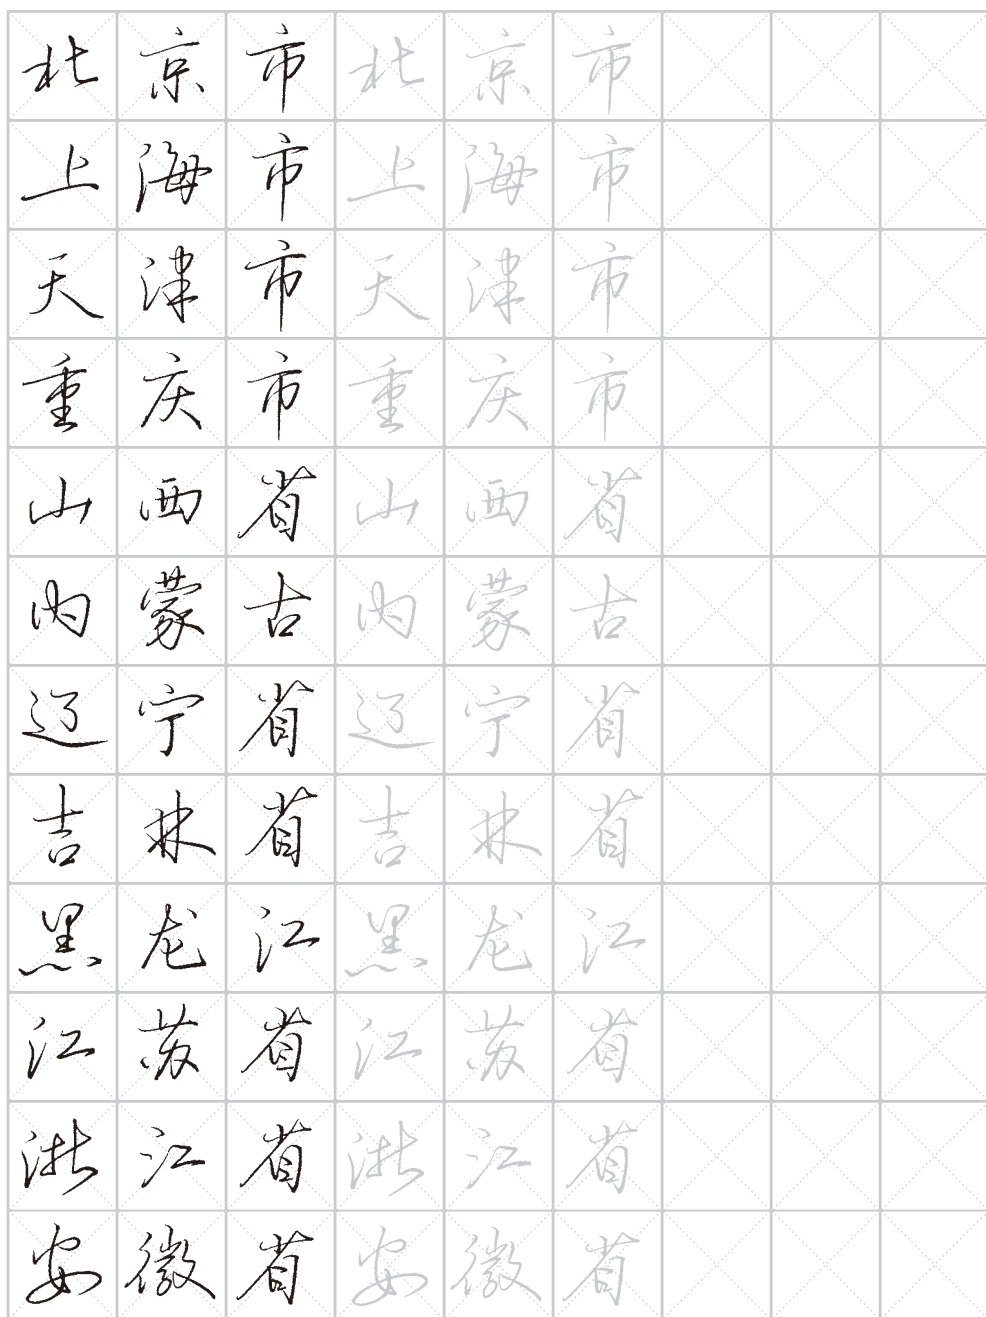 北京市北京市
上海市上海市
天津市天津市
重庆市重庆市
山西省山西省
内蒙古内蒙古
辽宁省辽宁省
吉林省吉林省
黑龙江黑龙江
江苏省江苏省
浙江省浙江省
安徽省安徽省